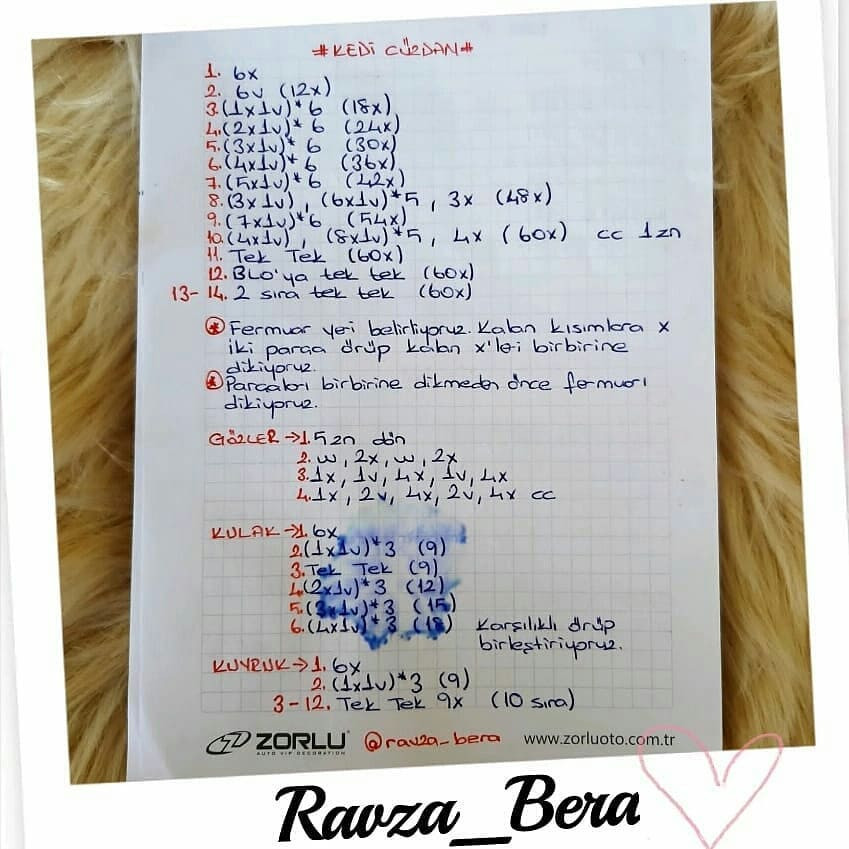 #KEDİ CÜZDAN#
1. 6x
2. 6v (12x)
3.(1x1v)*6 (18x)
4.(2x1v)*6 (24x)
5.(3x1v)*6 (30x)
6.(4x1v)*6 (36x)
7.(5x1v)*6 (42x)
8.(3x1v), (6x1v)*5, 3x (48x)
9.(7x1v)*6 (54x)
10.(4x1v), (8x1v)*5, 4x (60x) cc 1zn
11. Tek Tek (60x)
12. BLO'ya tek tek (60x)
13-14. 2 sıra tek tek (60x)
* Fermuar yeri belirliyoruz. Kalan kısımlara x
iki parça örüp kalan x'leri birbirine
dikiyoruz.
* Parçaları birbirine dikmeden önce fermuarı
dikiyoruz.
GÖZLER→1. 5zn dön
2. w, 2x, w, 2x
3. 1x, 1v, 4x, 1v, 4x
4. 1x, 2v, 4x, 2v, 4x cc
KULAK→1. 6x
2.(1x1v)*3 (9)
3. Tek Tek (9)
4.(2x1v)*3 (12)
5.(3x1v)*3 (15)
6.(4x1v)*3 (18) Karşılıklı örüp
birleştiriyoruz.
KUYRUK→1. 6x
2. (1x1v)*3 (9)
3-12. Tek Tek 9x (10 sıra)
ZORLU @ravza_bera www.zorluoto.com.tr
AUTO VIP DECORATION
Ravza_Bera